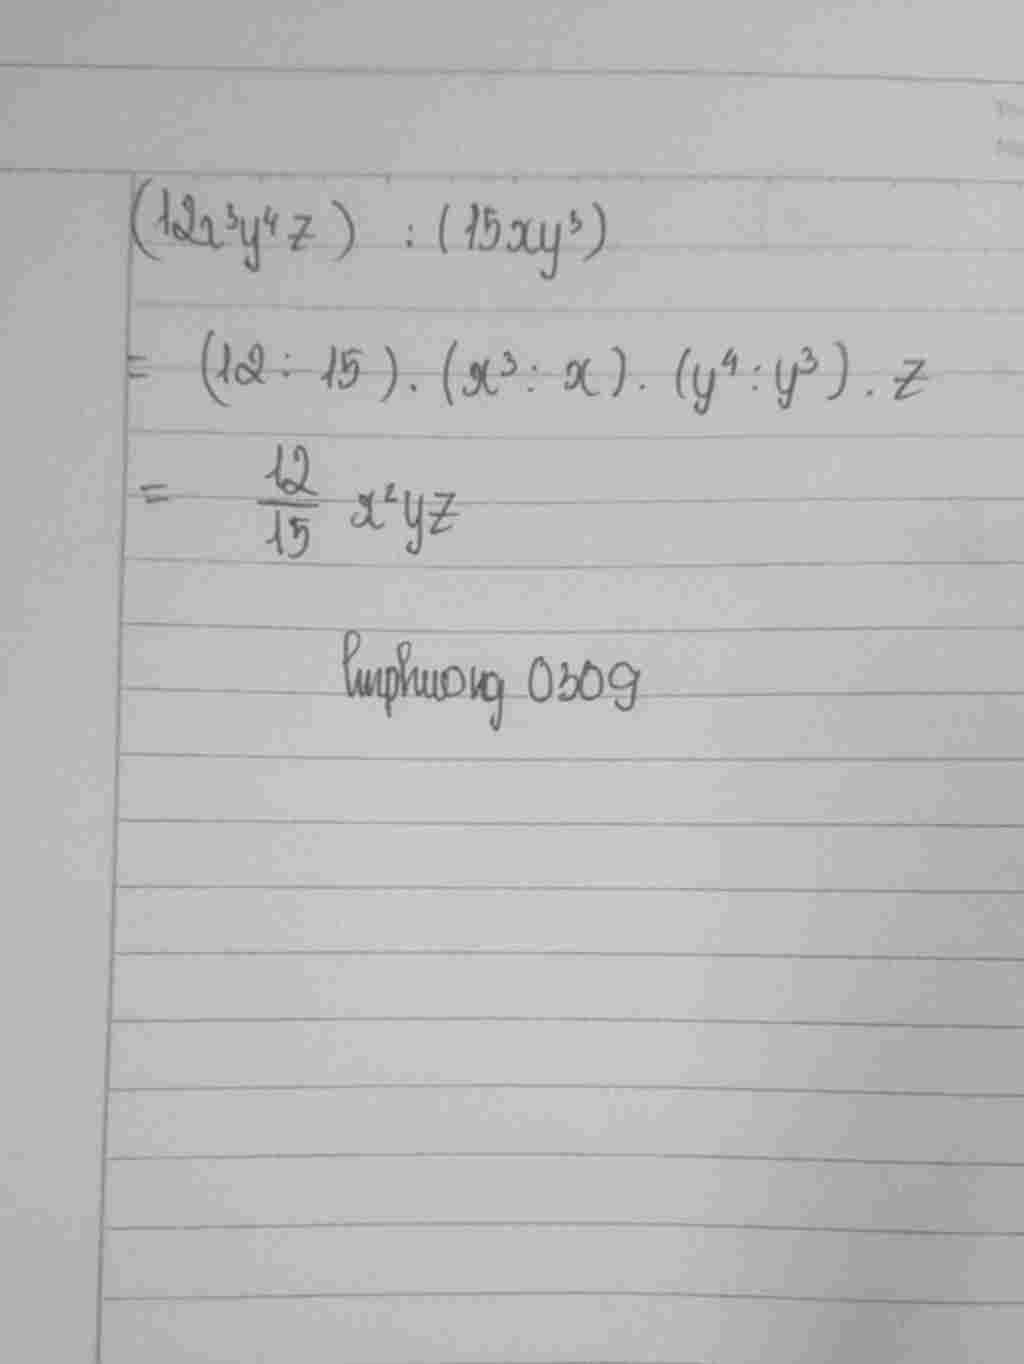 (12x³y⁴z) : (15xy³)
= (12 : 15) . (x³ : x) . (y⁴ : y³) . z
= 12/15 x²yz
linphuong 0309